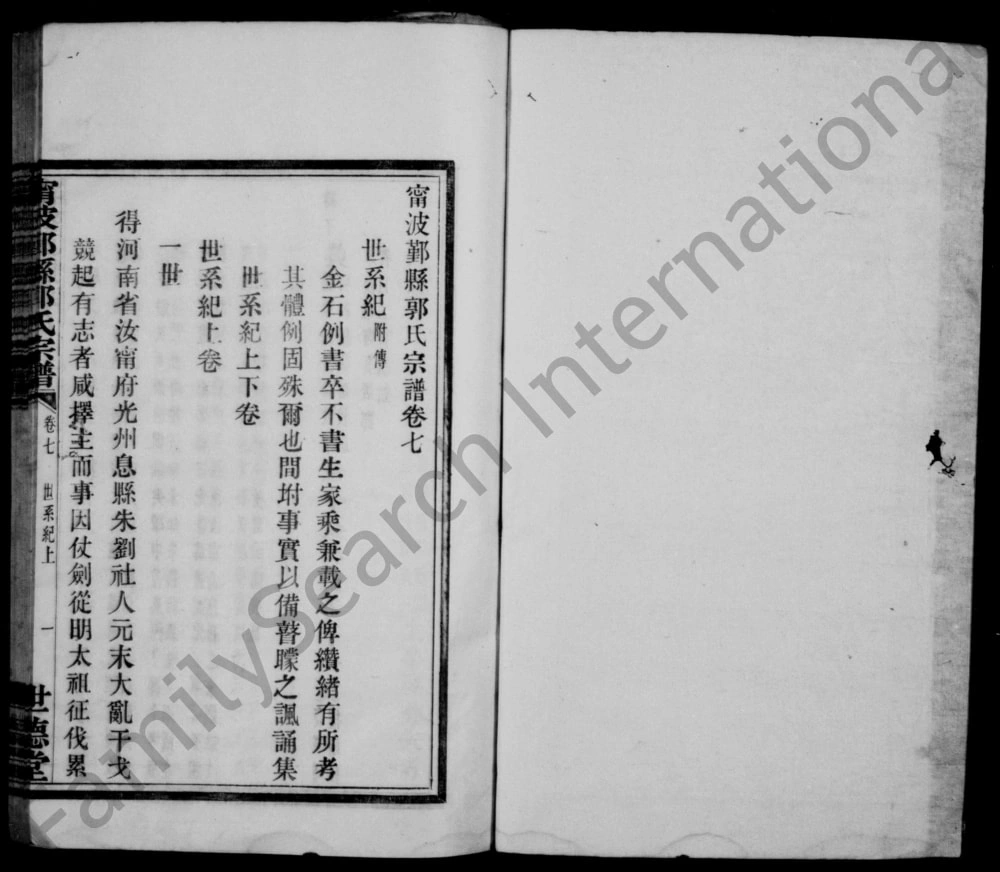 甯波鄞縣郭氏宗譜卷七
世系紀附傳
金石例書卒不書生家乘兼載之俾纘緒有所考
其體例固殊爾也間坿事實以備瞽矇之諷誦集
世系紀上下卷
世系紀上卷
一世
得河南省汝甯府光州息縣朱劉社人元末大亂干戈
競起有志者咸擇主而事因仗劍從明太祖征伐累
甯波鄞縣郭氏宗譜
卷七
世系紀上
一
世德堂
FamilySearch International